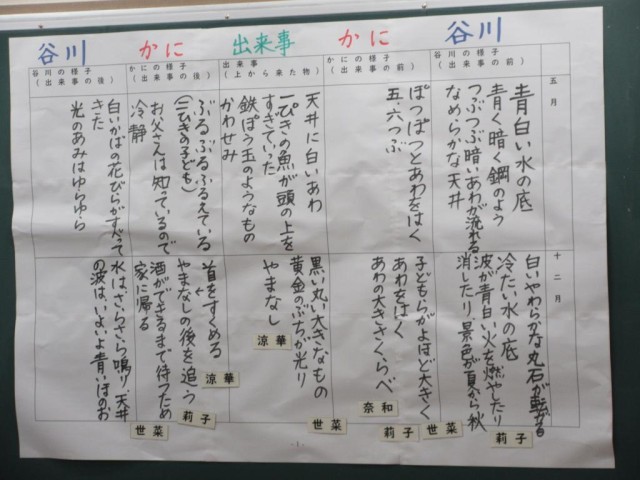 谷川
かに
出来事
かに
谷川
谷川の様子
（出来事の前）
かにの様子
（出来事の前）
出来事
（上から来た物）
かにの様子
（出来事の後）
谷川の様子
（出来事の後）
五月
青白い水の底
青く暗く鋼のよう
つぶつぶ暗いあわが流れる
なめらかな天井
ぽつぽつとあわをはく
五、六つぶ
天井に白いあわ
一ぴきの魚が頭の上を
すぎていった
鉄ぽう玉のようなもの
かわせみ
ぶるぶるふるえている
（三びきの子ども）
お父さんは知っているので
冷静
白いかばの花びらが天って
きた
光のあみはゆらゆら
十二月
白いやわらかな丸石が転がる
冷たい水の底
波が青白い火を燃やしたり
消したり
景色が夏から秋
莉子
世菜
子どもらがよほど大きく
あわをはく
あわの大きさくらべ
莉子
奈和
黒い丸い大きなもの
黄金のぶちが光り
やまなし
世菜
涼華
首をすくめる
↓
やまなしの後を追う
酒ができるまで待つため
家に帰る
涼華
莉子
世菜
水はさらさら鳴り天井
の波はいよいよ青いほのお
-1-